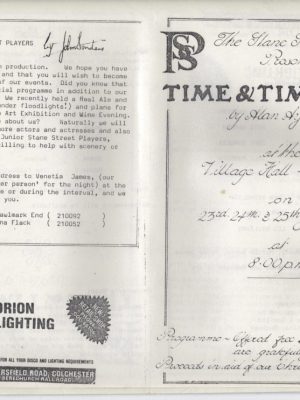 T PLAYERS by John Saunders
e production. We hope you have
and that you will wish to become
of our events. Did you know that
cial programme in addition to our
We recently held a Real Ale and
nder floodlights!) and plans for
Art Exhibition and Wine Evening.
e about us? Naturally we will
more actors and actresses and also
Junior Stane Street Players.
willing to help with scenery or
ddress to Venetia James, (our
er person' for the night) at the
e or during the interval, and we
you.
awlmark End ( 210092 )
na Flack ( 210052 )
ORION
LIGHTING
FOR ALL YOUR DISCO AND LIGHTING REQUIREMENTS
ERSFIELD ROAD, COLCHESTER
BERECHURCH HALL ROAD
PSS
The Stane S
Prese
TIME & TIM
by Alan Ay
at the
Village Hall
on
23rd, 24th, & 25th
at
8.00 p.m
Programme - Offered free
are grateful
Proceeds in aid of our Chr